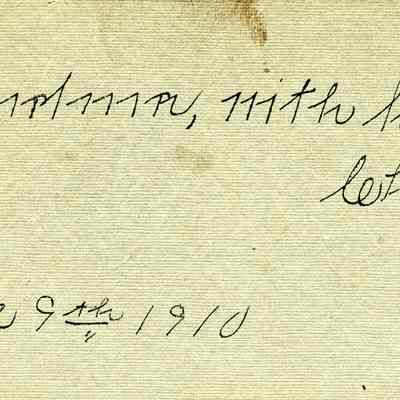 ndma, with l
let
e 9th 1910